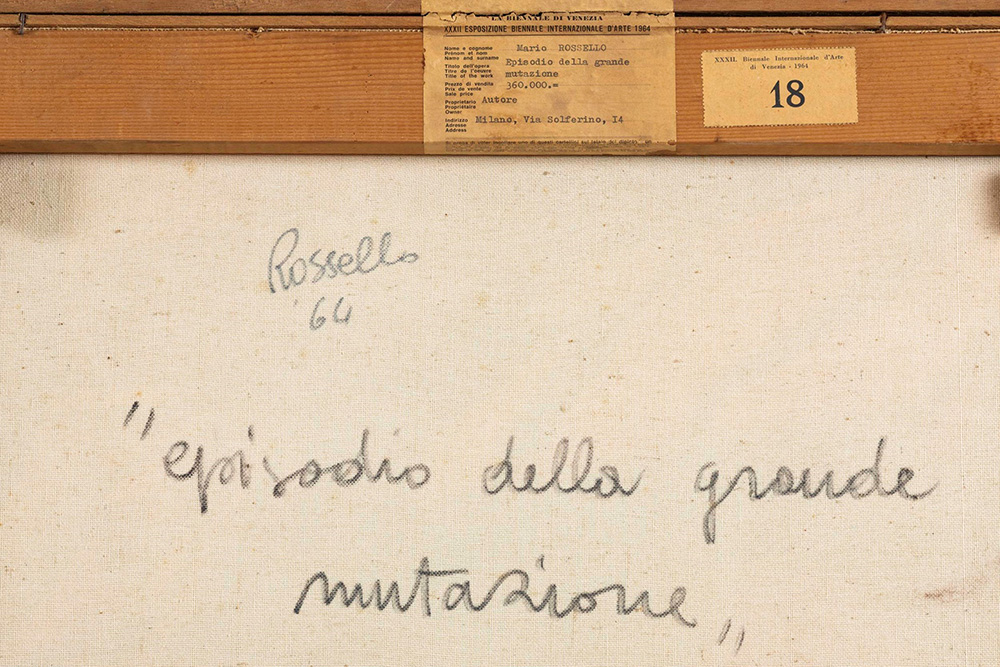 LA BIENNALE DI VENEZIA
XXXII ESPOSIZIONE BIENNALE INTERNAZIONALE D'ARTE 1964
Nome e cognome
Prénom et nom
Name and surname
Mario ROSSELLO
Titolo dell'opera
Titre de l'oeuvre
Title of the work
Episodio della grande
mutazione
Prezzo di vendita
Prix de vente
Sale price
360.000.=
Proprietario
Propriétaire
Owner
Autore
Indirizzo
Adresse
Address
Milano, Via Solferino, I4
XXXII. Biennale Internazionale d'Arte
di Venezia - 1964
18
Rossello
'64
"episodio della grande
mutazione"